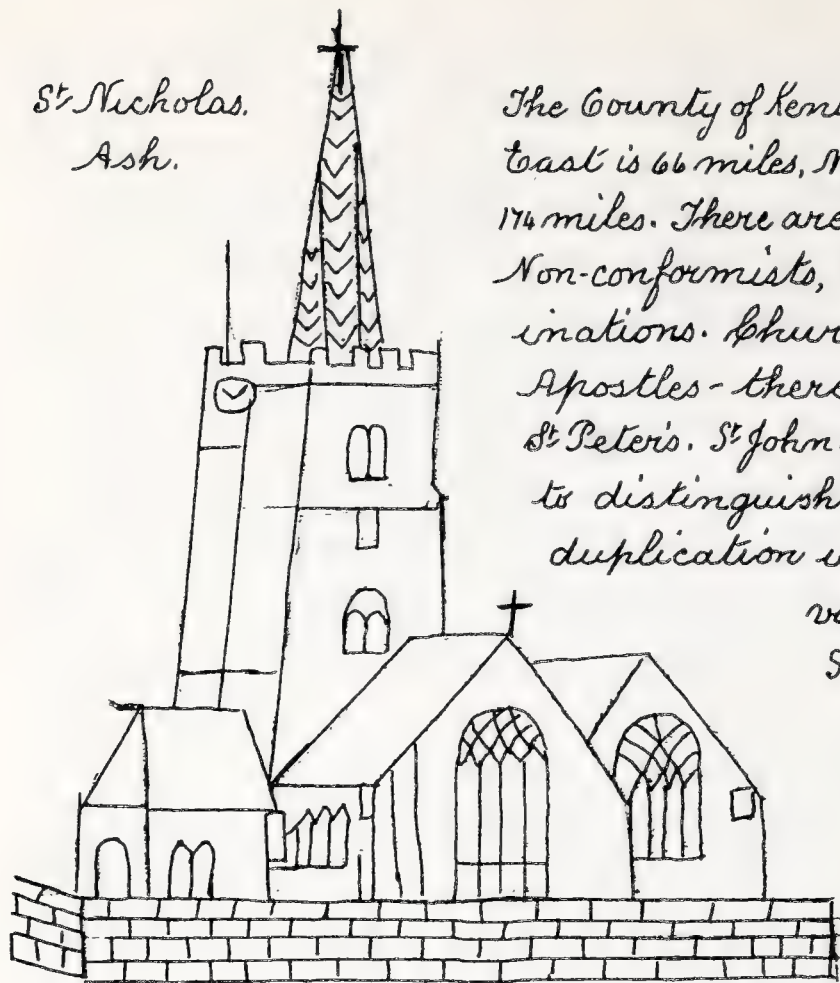 St. Nicholas.
Ash.
The County of Ken
East is 66 miles,
174 miles. There are
Non-conformists,
inations. Chur
Apostles - there
St. Peter's. St. John
to distinguish
duplication